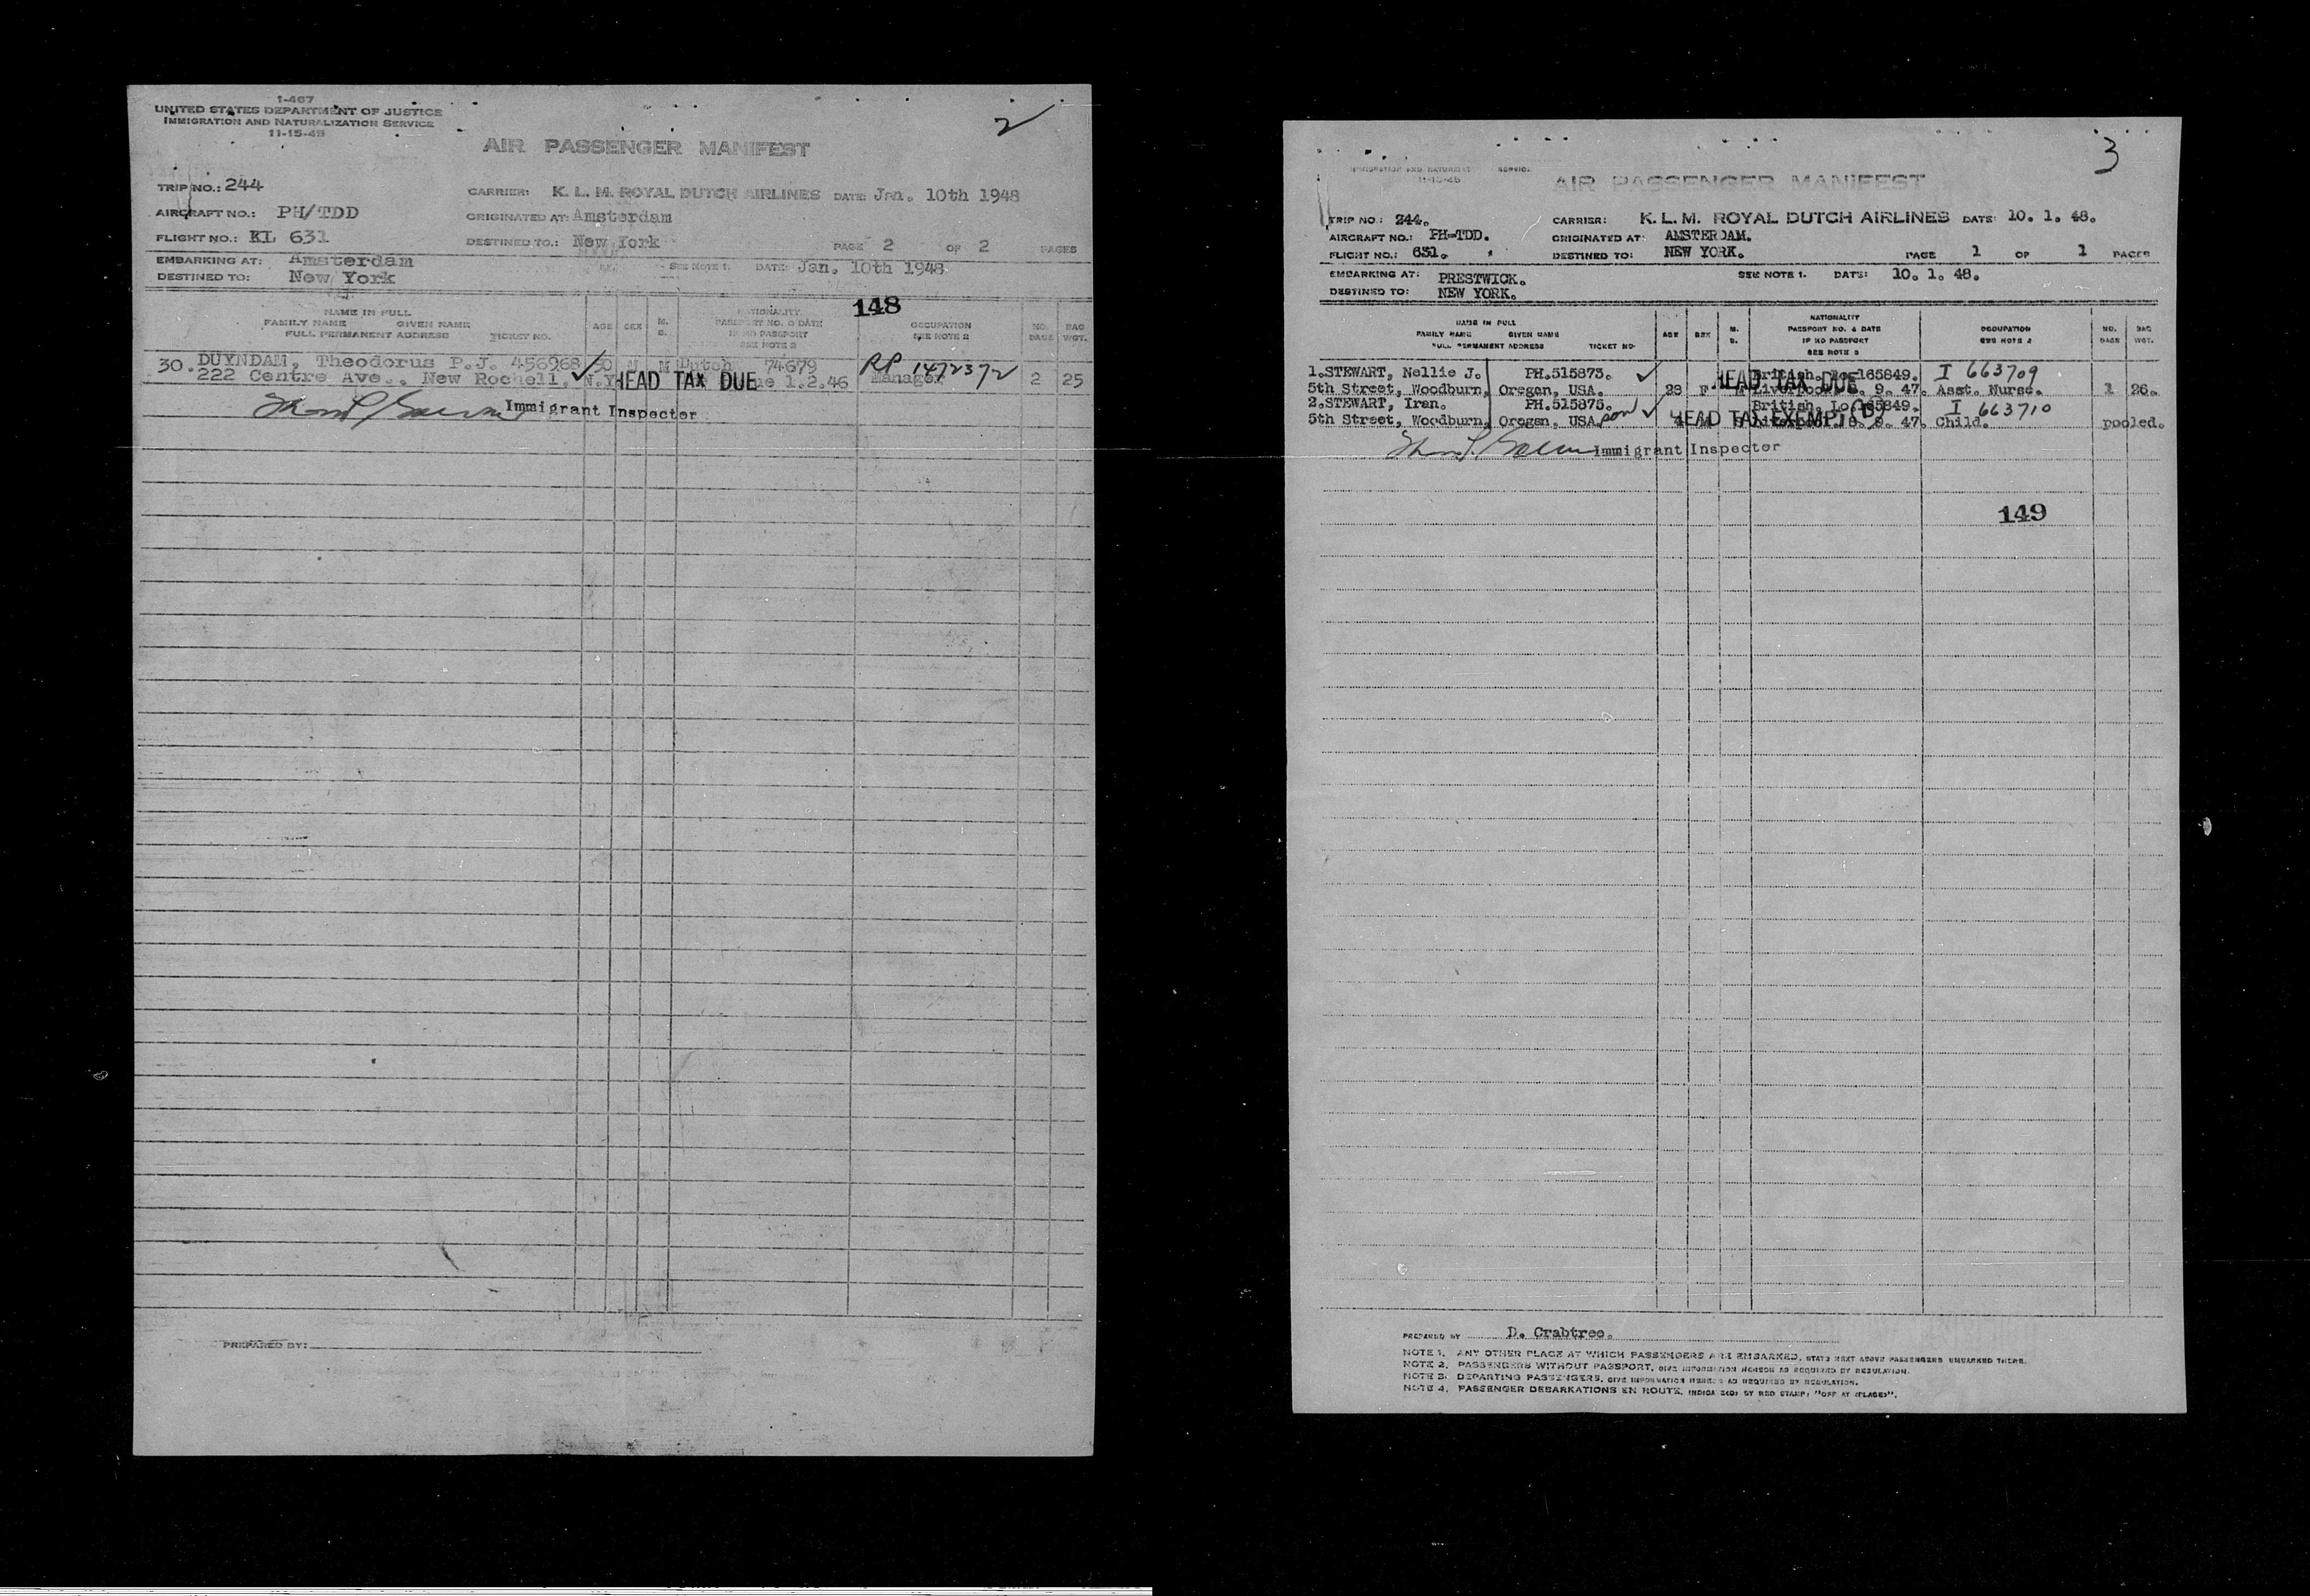 1-467
UNITED STATES DEPARTMENT OF JUSTICE
IMMIGRATION AND NATURALIZATION SERVICE
11-15-45
2
AIR PASSENGER MANIFEST
TRIP NO.: 244 CARRIER: K. L. M. ROYAL DUTCH AIRLINES DATE: Jan. 10th 1948
AIRCRAFT NO.: PH/TDD ORIGINATED AT: Amsterdam
FLIGHT NO.: KL 631 DESTINED TO.: New York PAGE 2 OF 2 PAGES
EMBARKING AT: Amsterdam SEE NOTE 1. DATE: Jan. 10th 1948
DESTINED TO: New York
148
NAME IN FULL
FAMILY NAME GIVEN NAME
FULL PERMANENT ADDRESS TICKET NO.
AGE SEX M. S.
NATIONALITY
PASSPORT NO. & DATE
IF NO PASSPORT
SEE NOTE 2
OCCUPATION
SEE NOTE 2
NO. BAGS
BAG WGT.
30. DUYNDAM, Theodorus P.J. 456968 50 M M Dutch 74679 RP 1472372
222 Centre Ave.. New Rochell. N.Y HEAD TAX DUE 1.2.46 Manager 2 25
Immigrant Inspector
PREPARED BY:
3
IMMIGRATION AND NATURALIZ SERVICE
11-15-45
AIR PASSENGER MANIFEST
TRIP NO.: 244. CARRIER: K. L. M. ROYAL DUTCH AIRLINES DATE: 10. 1. 48.
AIRCRAFT NO.: PH-TDD. ORIGINATED AT: AMSTERDAM.
FLIGHT NO.: 631. DESTINED TO: NEW YORK. PAGE 1 OF 1 PAGES
EMBARKING AT: PRESTWICK. SEE NOTE 1. DATE: 10. 1. 48.
DESTINED TO: NEW YORK.
NAME IN FULL
FAMILY NAME GIVEN NAME
FULL PERMANENT ADDRESS TICKET NO.
AGE SEX M. S.
NATIONALITY
PASSPORT NO. & DATE
IF NO PASSPORT
SEE NOTE 2
OCCUPATION
SEE NOTE 2
NO. BAGS
BAG WGT.
1.STEWART, Nellie J. PH.515873. British. 165849. I 663709
5th Street, Woodburn, Oregan, USA. 28 F M HEAD TAX DUE 9. 47. Asst. Nurse. 1 26.
2.STEWART, Iran. PH.515875. British. 165849. I 663710
5th Street, Woodburn, Oregan, USA. HEAD TAX EXEMPT 9. 47. Child. pooled.
Immigrant Inspector
149
PREPARED BY D. Crabtree.
NOTE 1. ANY OTHER PLACE AT WHICH PASSENGERS ARE EMBARKED, STATE NEXT ABOVE PASSENGERS EMBARKED THERE.
NOTE 2. PASSENGERS WITHOUT PASSPORT, GIVE INFORMATION HEREON AS REQUIRED BY REGULATION.
NOTE 3. DEPARTING PASSENGERS, GIVE INFORMATION HEREON AS REQUIRED BY REGULATION.
NOTE 4. PASSENGER DEBARKATIONS EN ROUTE, INDICATED BY RED STAMP: "OFF AT (PLACE)".